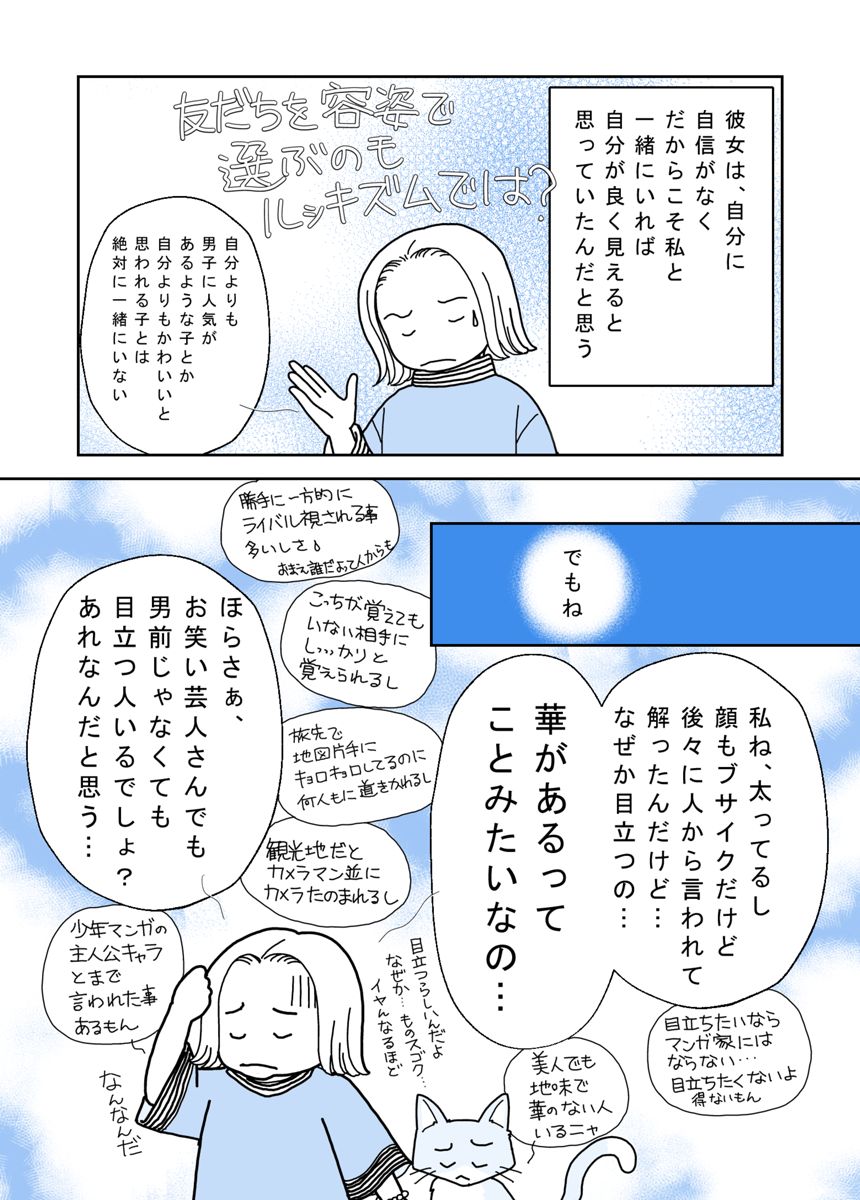 彼女は、自分に
自信がなく
だからこそ私と
一緒にいれば
自分が良く見えると
思っていたんだと思う
友だちを容姿で
選ぶのも
ルッキズムでは?
自分よりも
男子に人気が
あるような子とか
自分よりもかわいいと
思われる子とは
絶対に一緒にいない
でもね
私ね、太ってるし
顔もブサイクだけど
後々に人から言われて
解ったんだけど…
なぜか目立つの…
華があるって
ことみたいなの…
目立ちたいなら
マンガ家には
ならない…
目立ちたくないよ
得ないもん
勝手に一方的に
ライバル視される事
多いしさ。
おまえ誰だよって人からも
こっちが覚えても
いない相手に
しっっカリと
覚えられるし
旅先で
地図片手に
キョロキョロしてるのに
何人もに道きかれるし
観光地だと
カメラマン並に
カメラたのまれるし
ほらさぁ、
お笑い芸人さんでも
男前じゃなくても
目立つ人いるでしょ?
あれなんだと思う…
少年マンガの
主人公キャラ
とまで
言われた事
あるもん
目立つらしいんだよ
なぜか…ものスゴク…
イヤんなるほど
なんなんだ
美人でも
地味で
華のない人
いるニャ